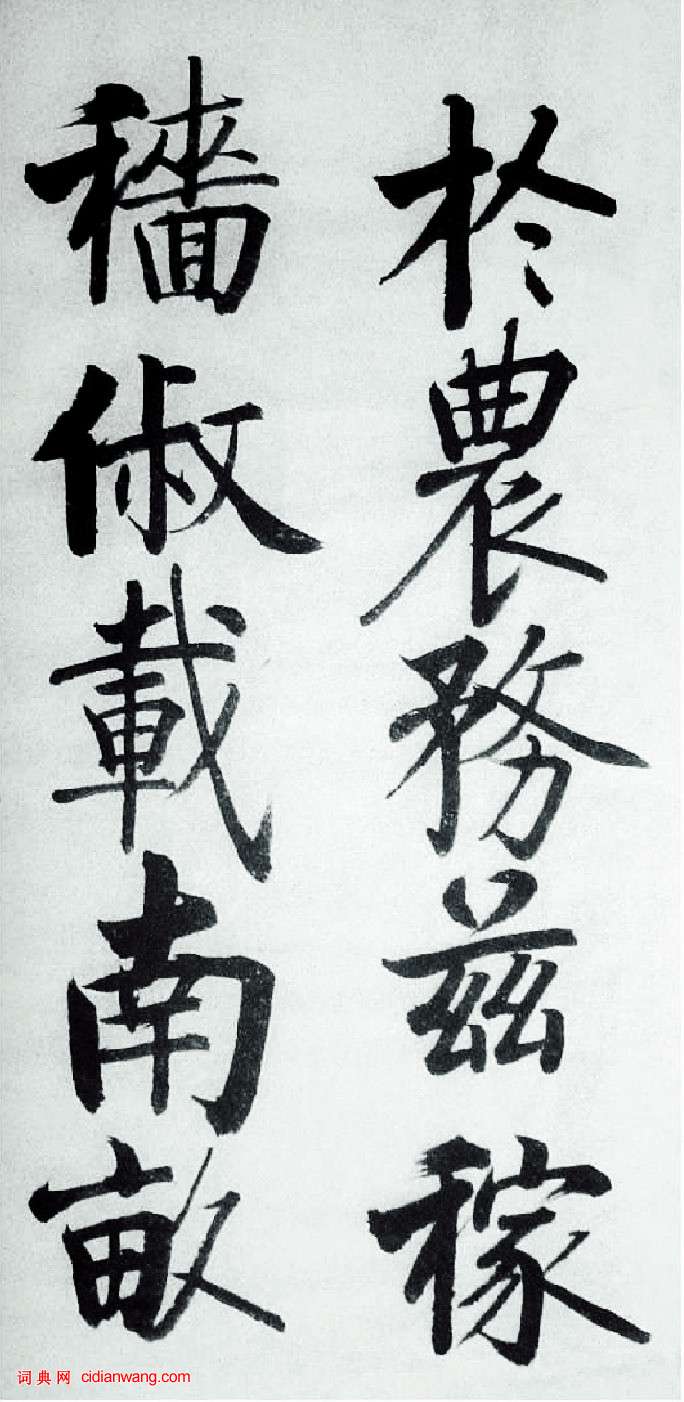 於農務茲稼
穡俶載南畝
词典网 cidianwang.com